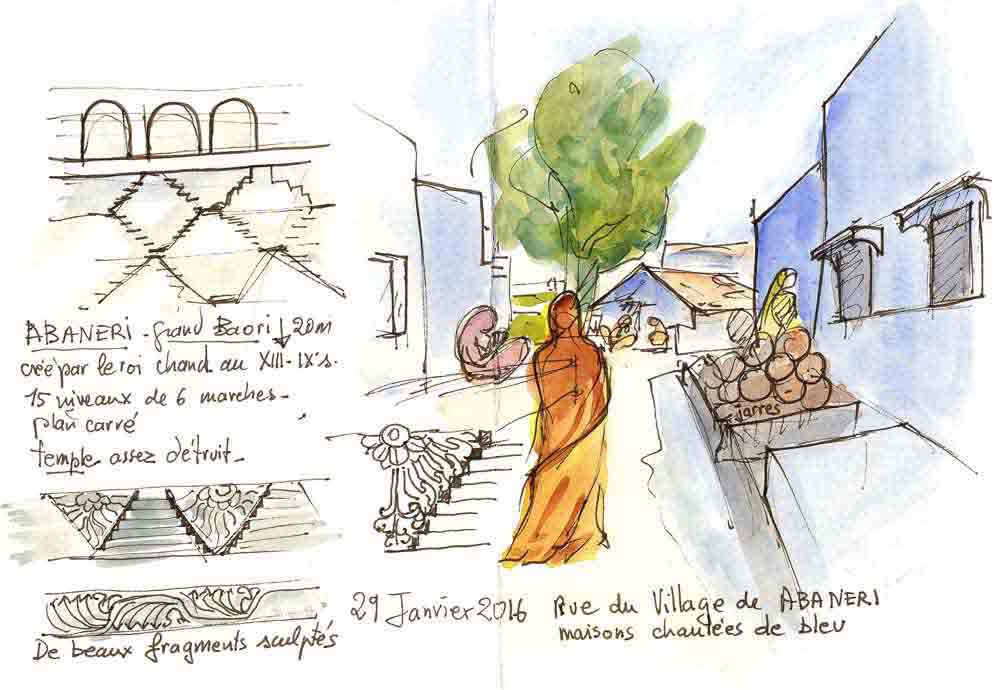 ABANERI - grand Baori ↓ 20m
créé par le roi chand au XIII-IX's.
15 niveaux de 6 marches -
plan carré
temple assez détruit -
De beaux fragments sculptés
jarres
29 Janvier 2016
Rue du Village de ABANERI
maisons chaulées de bleu